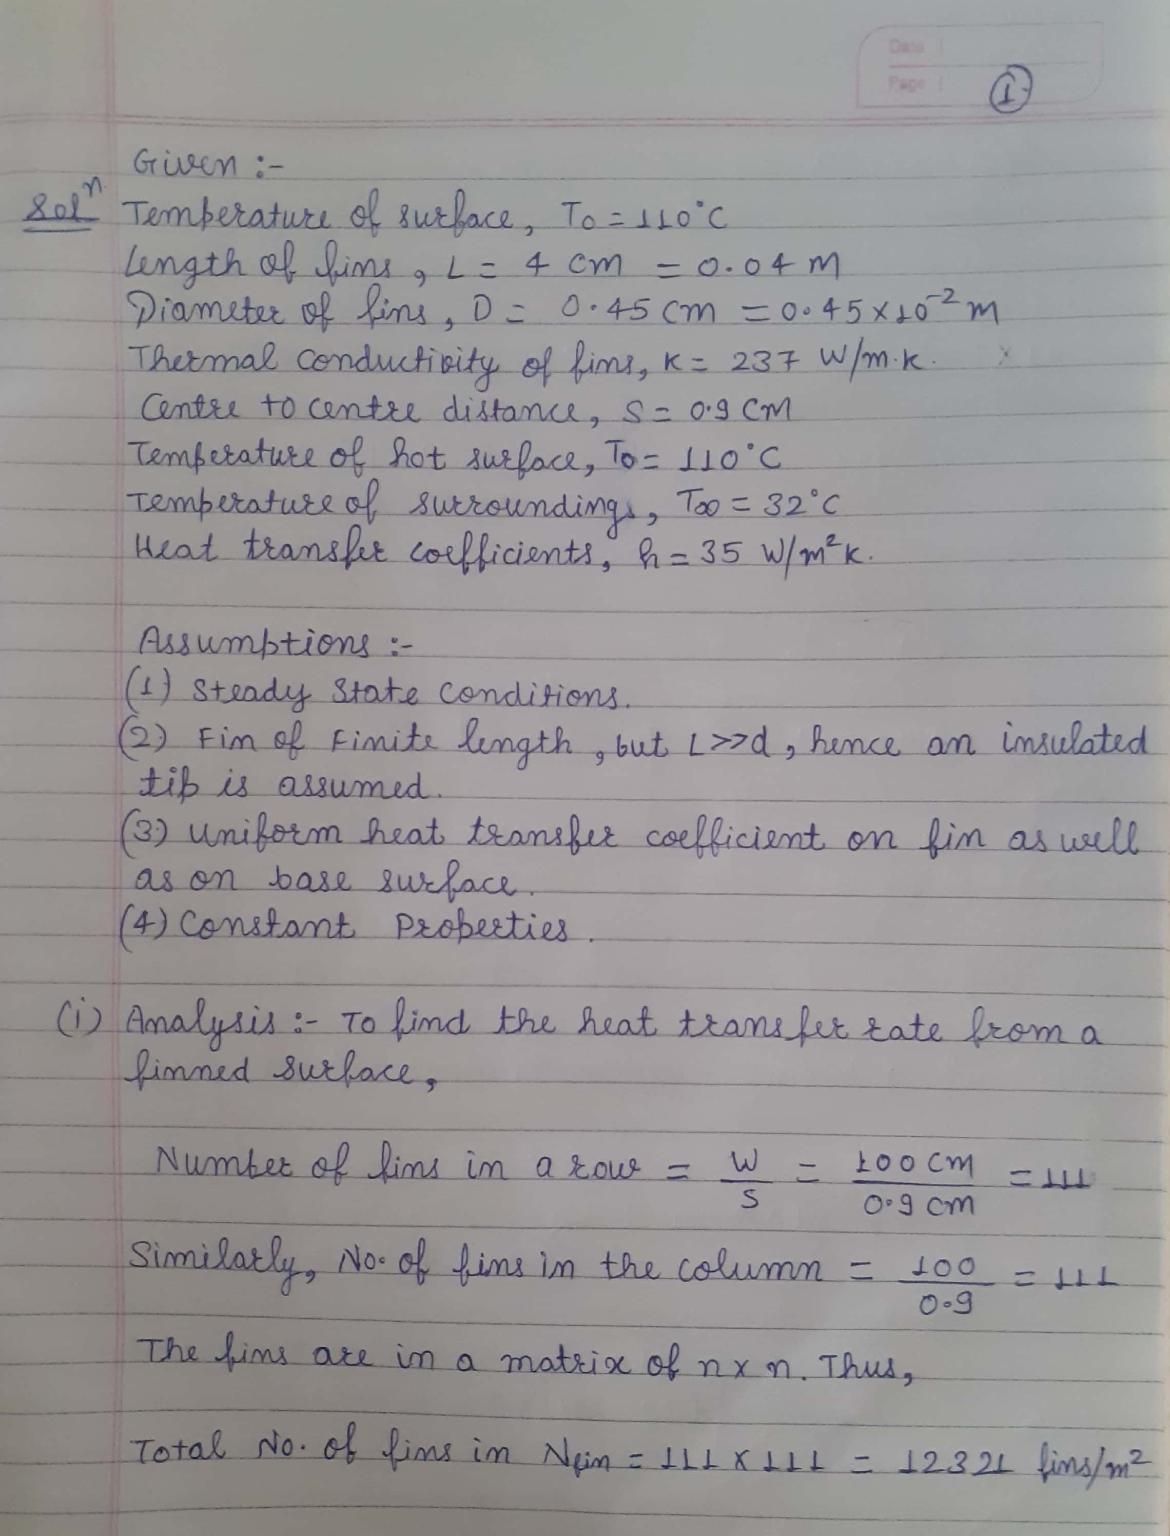 Date
Page
1
Given :-
Solⁿ Temperature of surface, To = 110°C
Length of fins, L = 4 cm = 0.04 m
Diameter of fins, D = 0.45 cm = 0.45 × 10⁻² m
Thermal conductivity of fins, K = 237 W/m.k.
Centre to centre distance, S = 0.9 cm
Temperature of hot surface, To = 110°C
Temperature of surroundings, T∞ = 32°C
Heat transfer coefficients, h = 35 W/m²k.
Assumptions :-
(1) Steady State conditions.
(2) Fin of Finite length, but L>>d, hence an insulated
tip is assumed.
(3) Uniform heat transfer coefficient on fin as well
as on base surface.
(4) Constant Properties.
(i) Analysis :- To find the heat transfer rate from a
finned surface,
Number of fins in a row = W/S = 100 cm/0.9 cm = 111
Similarly, No. of fins in the column = 100/0.9 = 111
The fins are in a matrix of n x n. Thus,
Total No. of fins in Nfin = 111 x 111 = 12321 fins/m²